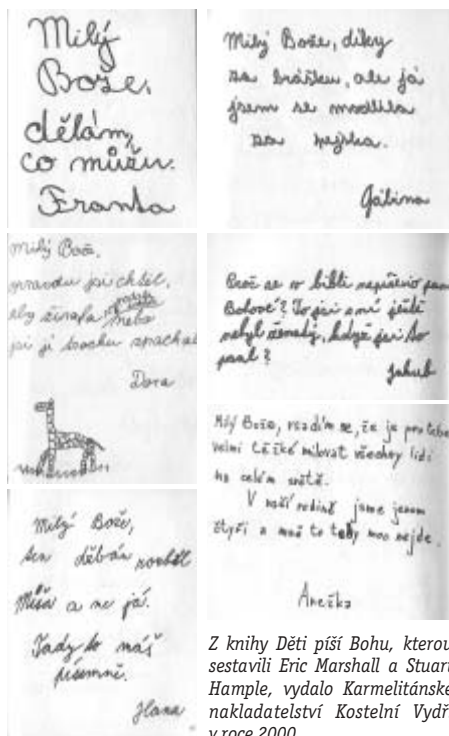 Milý
Bože,
dělám,
co můžu.
Franta
milý Bože,
opravdu jsi chtěl,
aby žirafa nebo
jsi ji trochu spackal
Dora
Milý Bože,
ten džbán rozbil
Míša a ne já.
Tady to máš
písemně.
Hana
Milý Bože, díky
za brášku, ale já
jsem se modlila
za pejska.
Gábina
Proč se v bibli nepíše o paní
Bohové? To jsi s ní ještě
nebyl ženatý, když jsi to
psal?
Jakub
Milý Bože, vsadím se, že je pro tebe
velmi těžké milovat všechny lidi
na celém světě.
V naší rodině jsme jenom
čtyři a mně to tedy moc nejde.
Anežka
Z knihy Děti píší Bohu, kterou
sestavili Eric Marshall a Stuart
Hample, vydalo Karmelitánské
nakladatelství Kostelní Vydří
v roce 2000